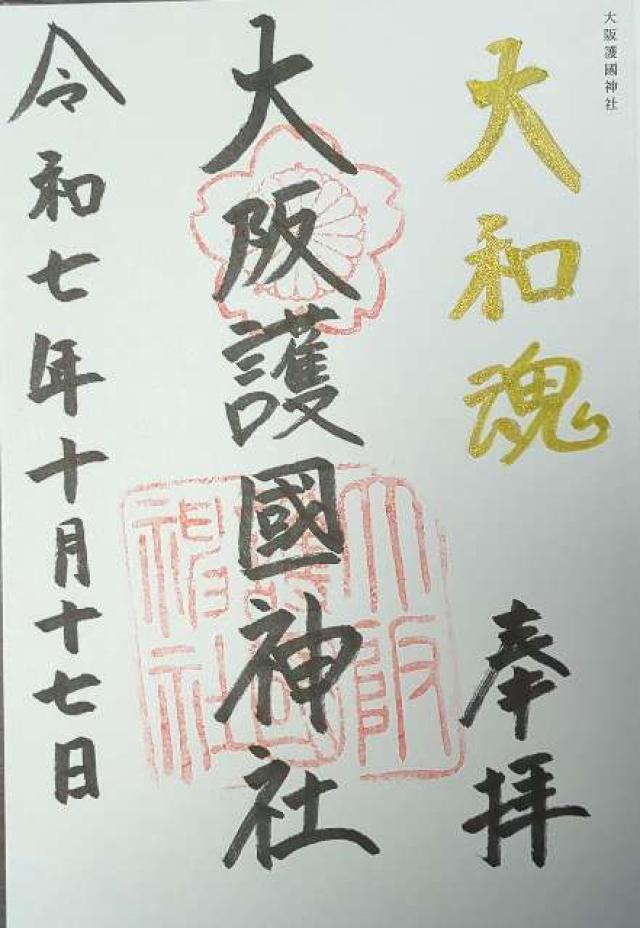 大阪護國神社
大和魂
奉拝
大阪護國神社
大阪護國神社
令和七年十月十七日